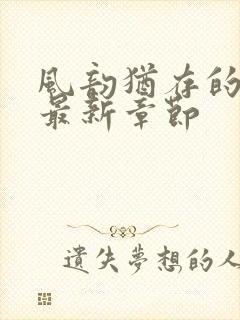 風韵猶存的
最新章節
遺失夢想的人